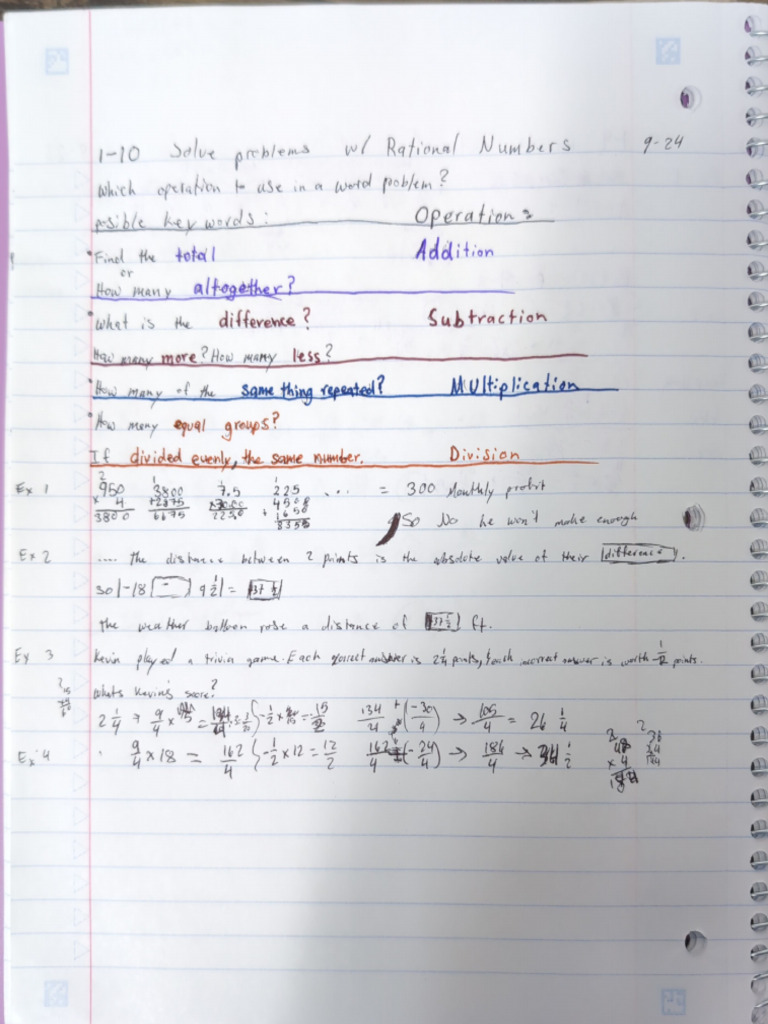 1-10 Solve problems w/ Rational Numbers 9-24
Which operation to use in a word problem?
posible key words: Operation:
• Find the total Addition
or
How many altogether?
• What is the difference? Subtraction
How many more? How many less?
• How many of the same thing repeated? Multiplication
• How many equal groups?
If divided evenly, the same number. Division
Ex 1 950 3800 7.5 225 .... = 300 Monthly profit
x 4 +2875
3800 6675
So No he won't make enough
Ex 2 .... the distance between 2 points is the absolute value of their difference.
30|-18 - 9 1/2| =
The weather balloon rose a distance of ft.
Ex 3 Kevin played a trivia game. Each correct answer is 2 1/4 points, & each incorrect answer is worth -1/2 points.
Whats Kevin's score?
2 1/4 → 9/4 x 15 = -1/2 x = 15/2 134/4 + (-30/4) → 105/4 = 26 1/4
Ex 4 9/4 x 18 = 162/4 -1/2 x 12 = 12/2 162/4 (-24/4) → 184/4 → 1/2